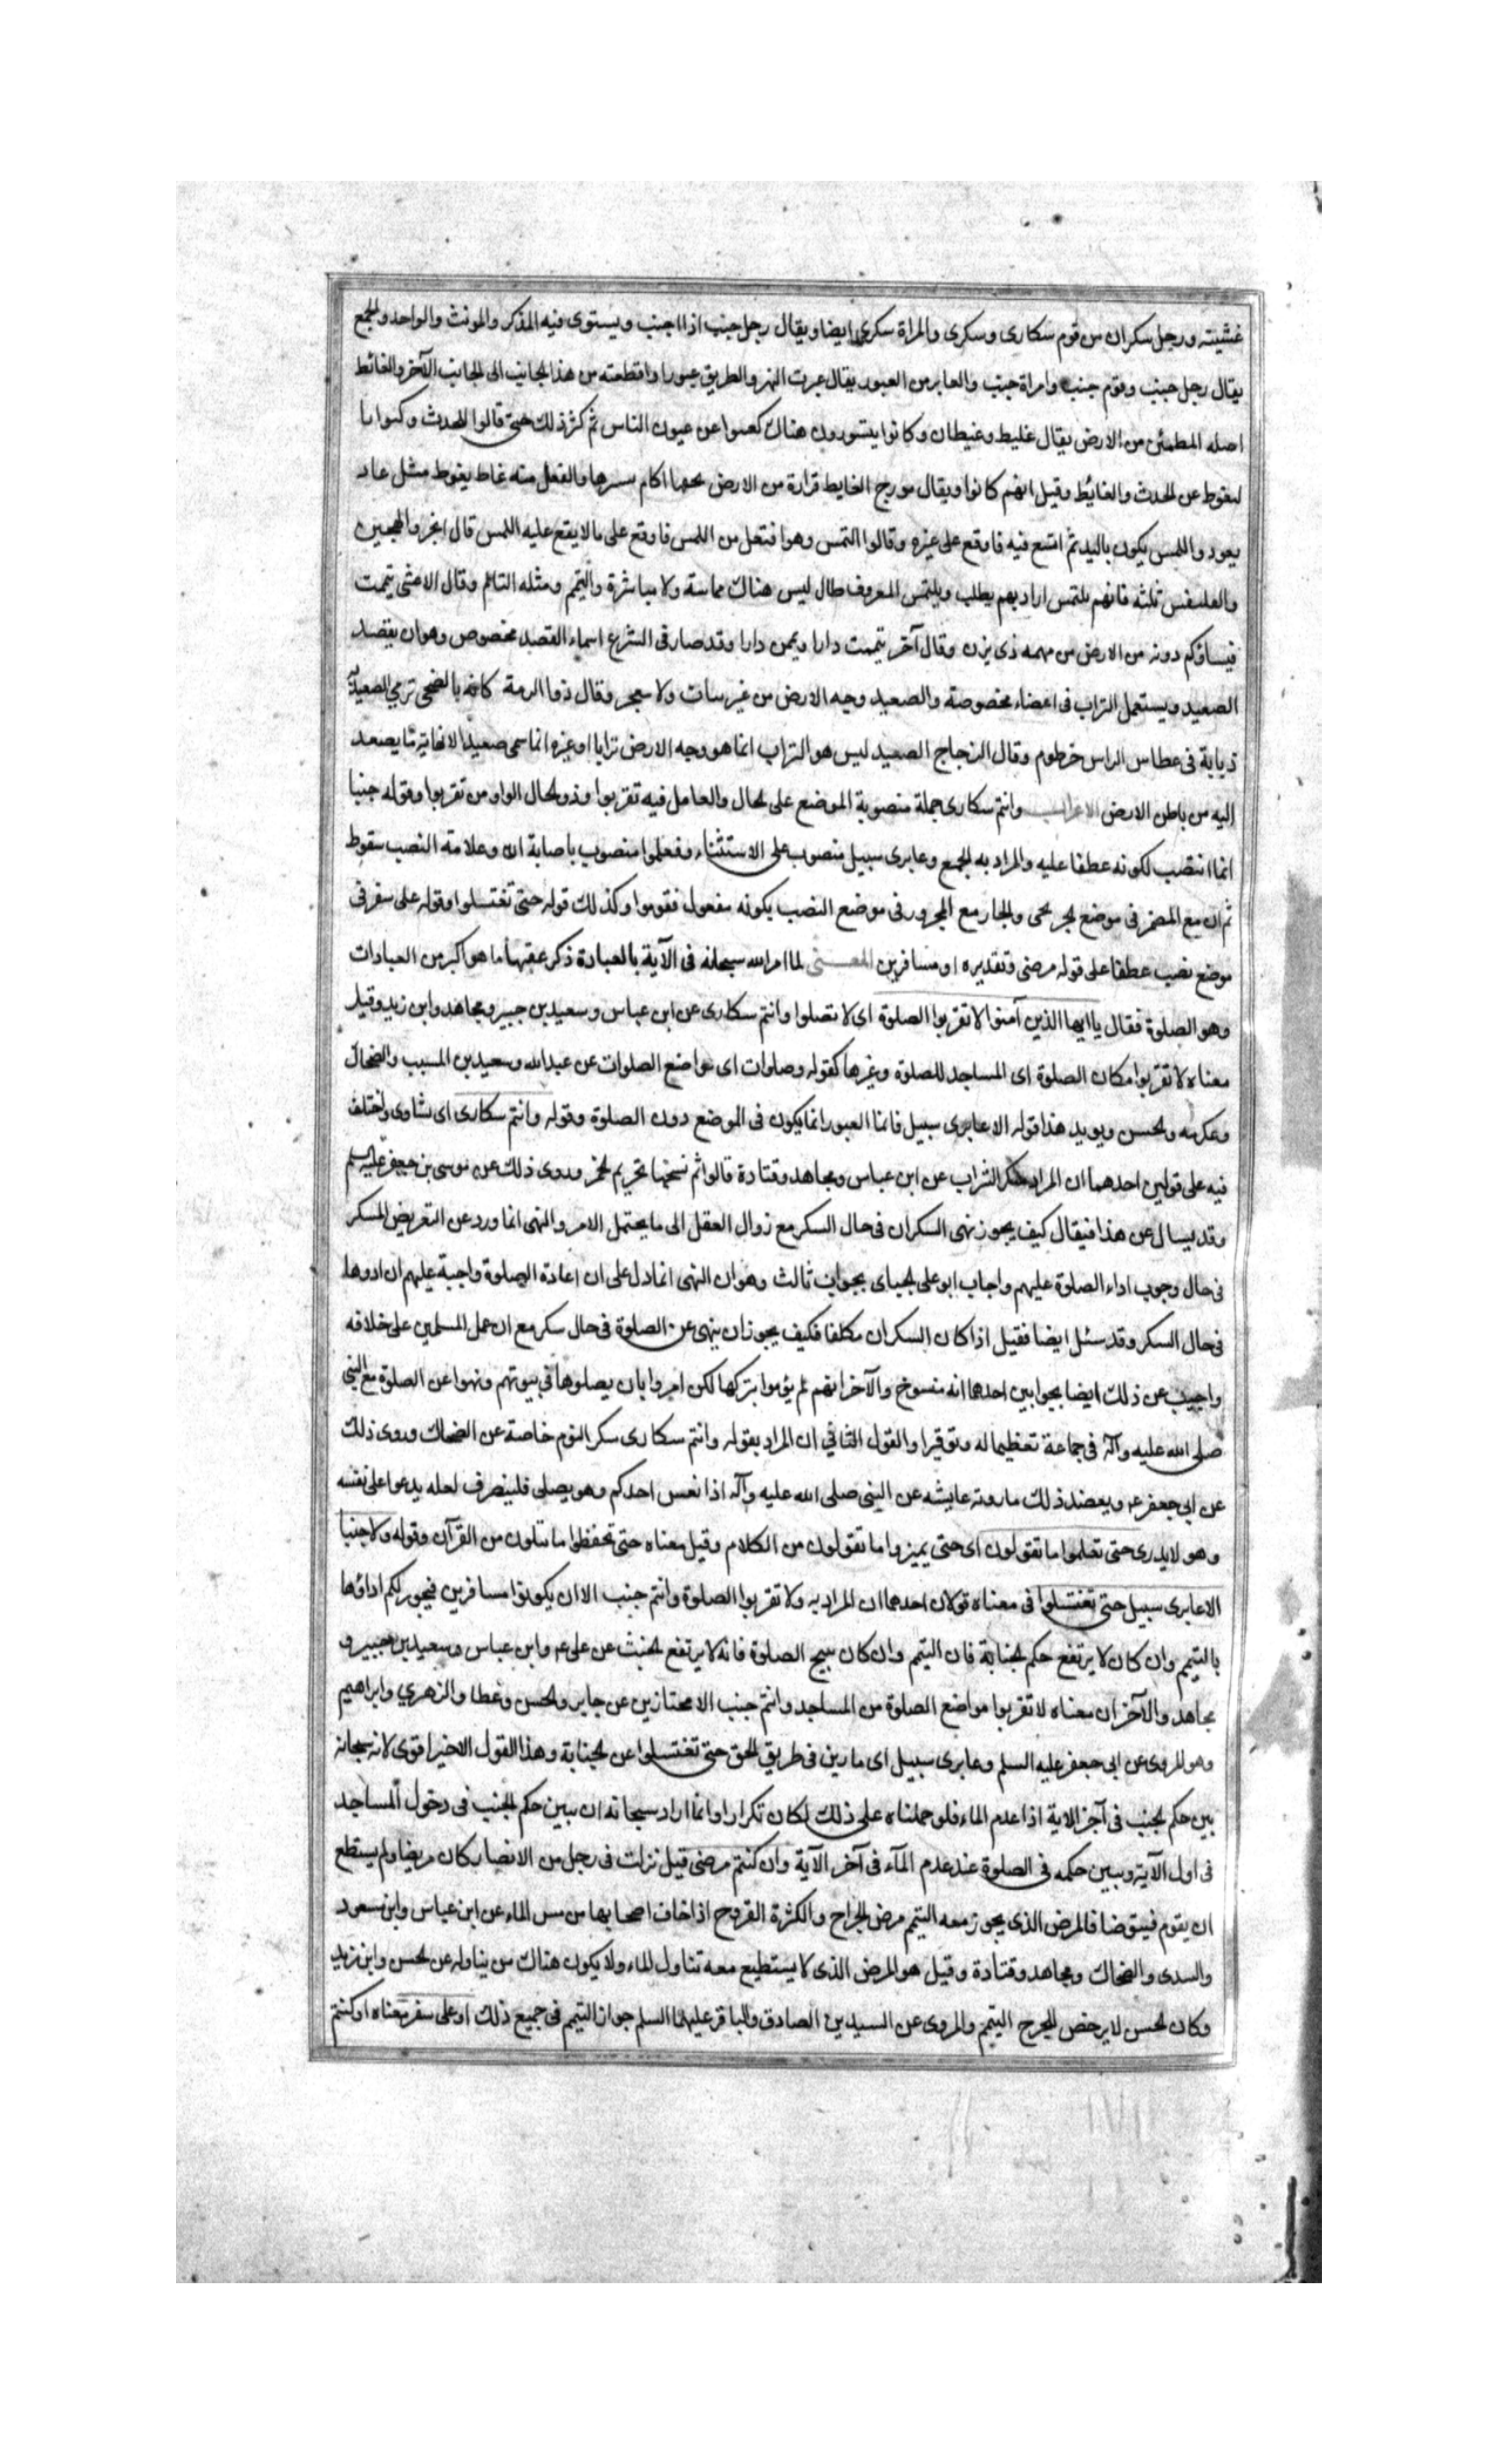 غشيته ورجل سكران من قوم سكارى وسكرى والمراة سكرى ايضا ويقال رجل جنب اذا اجنب ويستوى فيه المذكر والمونث والواحد والجمع
يقال رجل جنب وقوم جنب وامراة جنب والعابر من العبور يقال عبرت النهر والطريق عبورا واقطعته من هذا الجانب الى الجانب الآخر والغائط
اصله المطمئن من الارض يقال غليط وغيطان وكانوا يتسورون هناك عن عيون الناس ثم كثر ذلك حتى قالوا للحدث وكنوا با
لتغوط عن الحدث والغائط وقيل انهم كانوا ويقال مورج الغايط قرارة من الارض اكام والفعل منه غاط يغوط مثل عاد
يعود واللمس يكون باليد ثم اتسع فيه فاوقع على غيره وقالوا التمس وهو افتعل من اللمس فاوقع على ما لا يقع عليه اللمس قال
ثلثه فانهم يلتمس اراد بهم يطلب ويلتمس المعروف طال ليس هناك مماسة ولا مباشرة والتيمم ومثله التامم وقال الاعشى تيممت
فيساؤكم دونه من الارض من مهمه ذى يزن وقال آخر تيممت دارا ويمن دارا وقد صار فى الشرع اسماء القصد مخصوص وهو ان يقصد
الصعيد ويستعمل التراب فى اعضاء مخصوصة والصعيد وجه الارض من غير سات ولا سجر وقال ذوا الرمة كانه بالضحى ترمي الصعيد به
ذبابة فى عطاس الراس خرطوم وقال الزجاج الصعيد ليس هو التراب انما هو وجه الارض ترابا او غيره انما سمى صعيدا لانهاية ما يصعد
اليه من باطن الارض الاعراب وانتم سكارى جملة منصوبة الموضع على لحال والعامل فيه تقربوا وذو لحال الواو من تقربوا وقوله جنبا
انما انتصب لكونه عطفا عليه والمراد به الجمع وعابرى سبيل منصوب على الاستثناء وفعلموا منصوب باصابة ان وعلامة النصب سقوط
ثم ان مع المضمر فى موضع لجر بحى والجار مع المجرور فى موضع النصب يكونه مفعول فقوموا وكذلك قوله حتى تغتسلوا وقوله على سفر فى
موضع نصب عطفا على قوله مرضى وتقديره او مسافرين المعنى لما امر الله سبحانه فى الآية بالعبادة ذكر عقبها ما هو اكبر من العبادات
وهو الصلوة فقال يا ايها الذين آمنوا لا تقربوا الصلوة اى لا تصلوا وانتم سكارى عن ابن عباس وسعيد بن جبير ومجاهد وابن زيد وقيل
معناه لا تقربوا مكان الصلوة اى المساجد للصلوة وغيرها كقوله وصلوات اى مواضع الصلوات عن عبد الله وسعيد بن المسيب والضحاك
وعكرمه ولحسن ويويد هذا قوله الا عابرى سبيل فانما العبور انما يكون فى الموضع دون الصلوة وقوله وانتم سكارى اى نشاوى واختلف
فيه على قولين احدهما ان المراد سكر الشراب عن ابن عباس ومجاهد وقتادة قالوا ثم نسخها تحريم لخمر وروى ذلك عن موسى بن جعفر عليه السلم
وقد يسال عن هذا فيقال كيف يجوز نهى السكران فى حال السكر مع زوال العقل الى ما يحتمل الامر والنهى انما ورد عن التعريض المسكر
فى حال وجوب اداء الصلوة عليهم واجاب ابو على لجباى بجواب ثالث وهو ان النهى انما دل على ان اعادة الصلوة واجبة عليهم ان ادوها
فى حال السكر وقد سئل ايضا فقيل اذا كان السكران مكلفا فكيف يجوز ان ينهى عن الصلوة فى حال سكر مع ان عمل المسلمين على خلافه
واجيب عن ذلك ايضا بجوابين احدهما انه منسوخ والآخر انهم لم يؤموا بتركها لكن امروا بان يصلوها فى بيوتهم ونهوا عن الصلوة مع النبي
صلى الله عليه وآله فى جماعة تعظيما له وتوقيرا والقول الثاني ان المراد بقوله وانتم سكارى سكر النوم خاصة عن الضحاك وروى ذلك
عن ابى جعفر ع ويعضد ذلك ما روته عايشه عن النبى صلى الله عليه وآله اذا نعس احدكم وهو يصلى فلينصرف لعله يدعوا على نفسه
وهو لا يدرى حتى تعلموا ما تقولون اى حتى يميزوا ما تقولون من الكلام وقيل معناه حتى تحفظوا ما تتلون من القرآن وقوله ولا جنبا
الا عابرى سبيل حتى تغتسلوا فى معناه قولان احدهما ان المراد به ولا تقربوا الصلوة وانتم جنب الا ان يكونوا مسافرين فيجوز لكم اداؤها
بالتيمم وان كان لا يرتفع حكم لجنابة فان التيمم وان كان يبيح الصلوة فانه لا يرتفع لحنث عن على ع وابن عباس وسعيد بن جبير و
مجاهد والآخر ان معناه لا تقربوا مواضع الصلوة من المساجد وانتم جنب الا مجتازين عن جابر ولحسن وعطا والزهري وابراهيم
وهو المروى عن ابى جعفر عليه السلم وعابرى سبيل اى مارين فى طريق لحق حتى تغتسلوا عن لجنابة وهذا القول الاخير اقوى لانه سبحانه
بين حكم لجنب فى آجز الاية اذا عدم الماء فلو حملناه على ذلك لكان تكرارا وانما اراد سبحانه ان يبين حكم لجنب فى دخول المساجد
فى اول الآية ويبين حكمه فى الصلوة عند عدم المآء فى آخر الآية وان كنتم مرضى قيل نزلت فى رجل من الانصار كان مريضا ولم يستطع
ان يقوم فيتوضا فالمرض الذى يجوز معه التيمم مرض لجراح والكثرة القروح اذا خاف اصحابها من مس الماء عن ابن عباس وابن مسعود
والسدى والضحاك ومجاهد وقتادة وقيل هو المرض الذى لا يستطيع معه تناول الماء ولا يكون هناك من يناوله عن لحسن وابن زيد
وكان لحسن لا يرخص للجرح التيمم والمروى عن السيدين الصادق والباقر عليهما السلم جواز التيمم فى جميع ذلك او على سفر معناه او كنتم